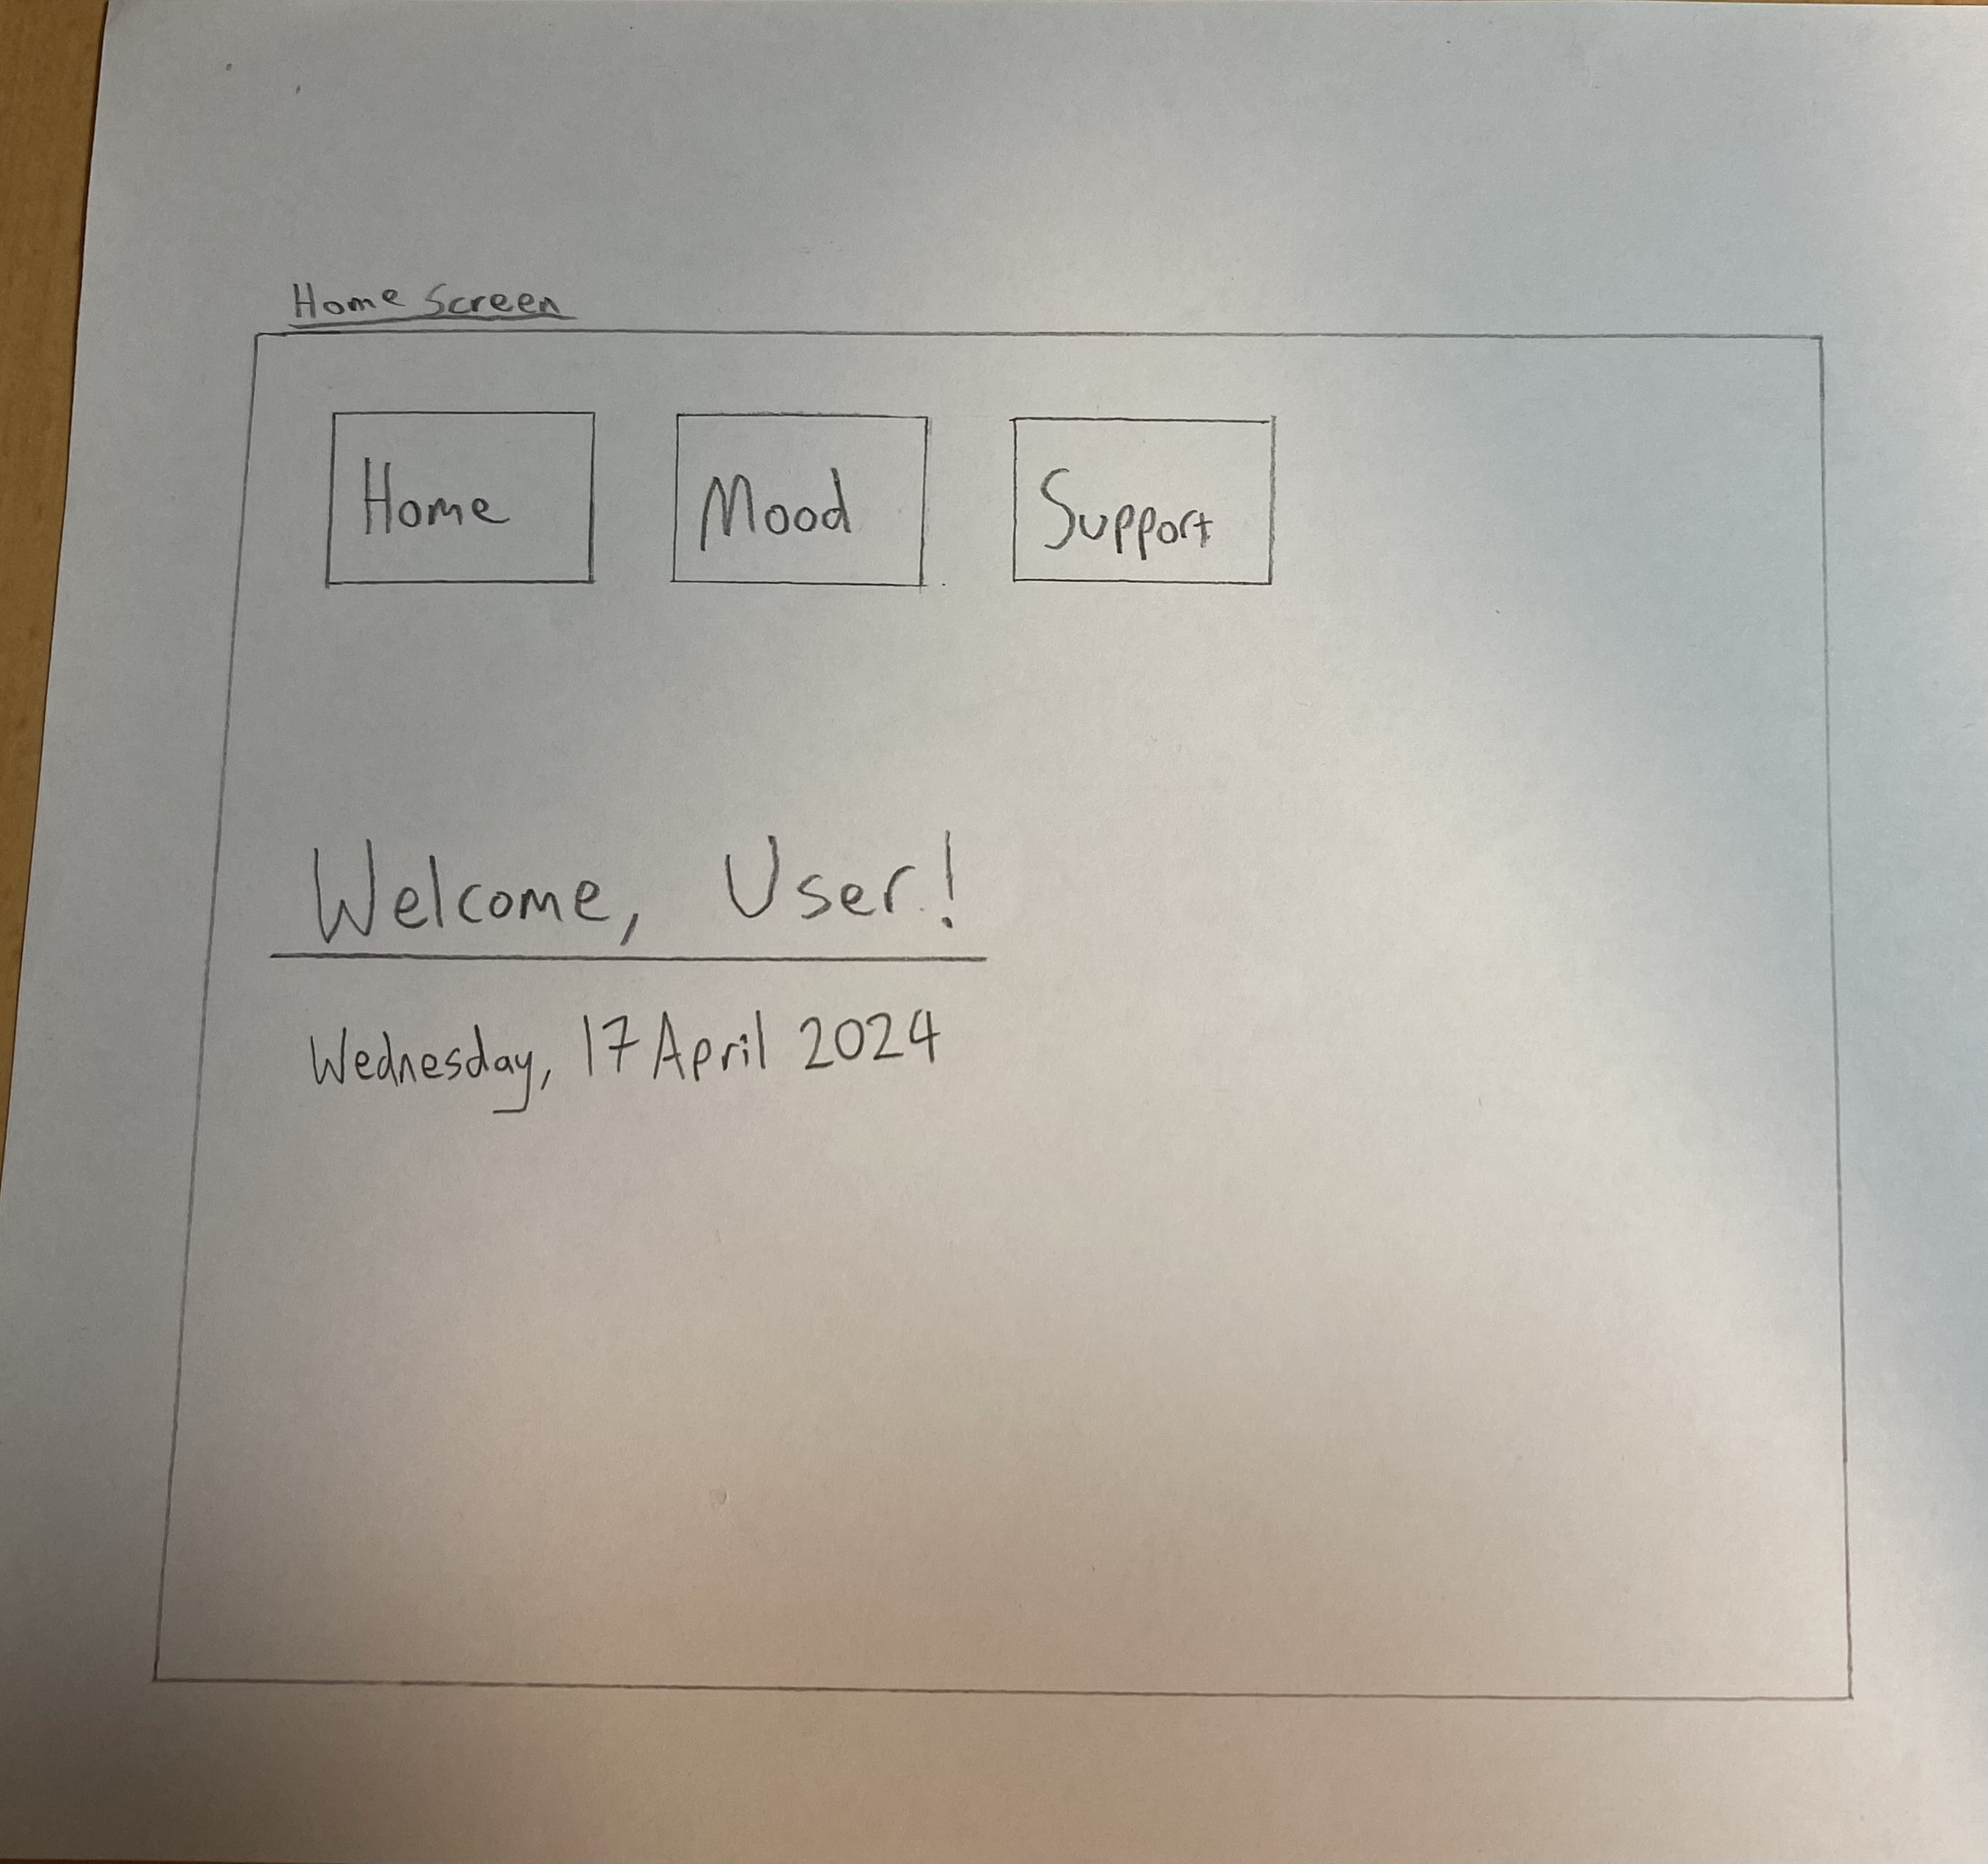 Home Screen
Home
Mood
Support
Welcome, User!
Wednesday, 17 April 2024